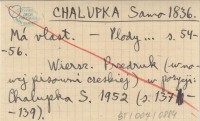 CHALUPKA Samo 1836.
Má vlast. — Plody... s. 54-
-56.
Wiersz. Przedruk (w no-
wej pisowni czeskiej) w pozycji:
Chalupka S. 1952 (s. 137
-139).